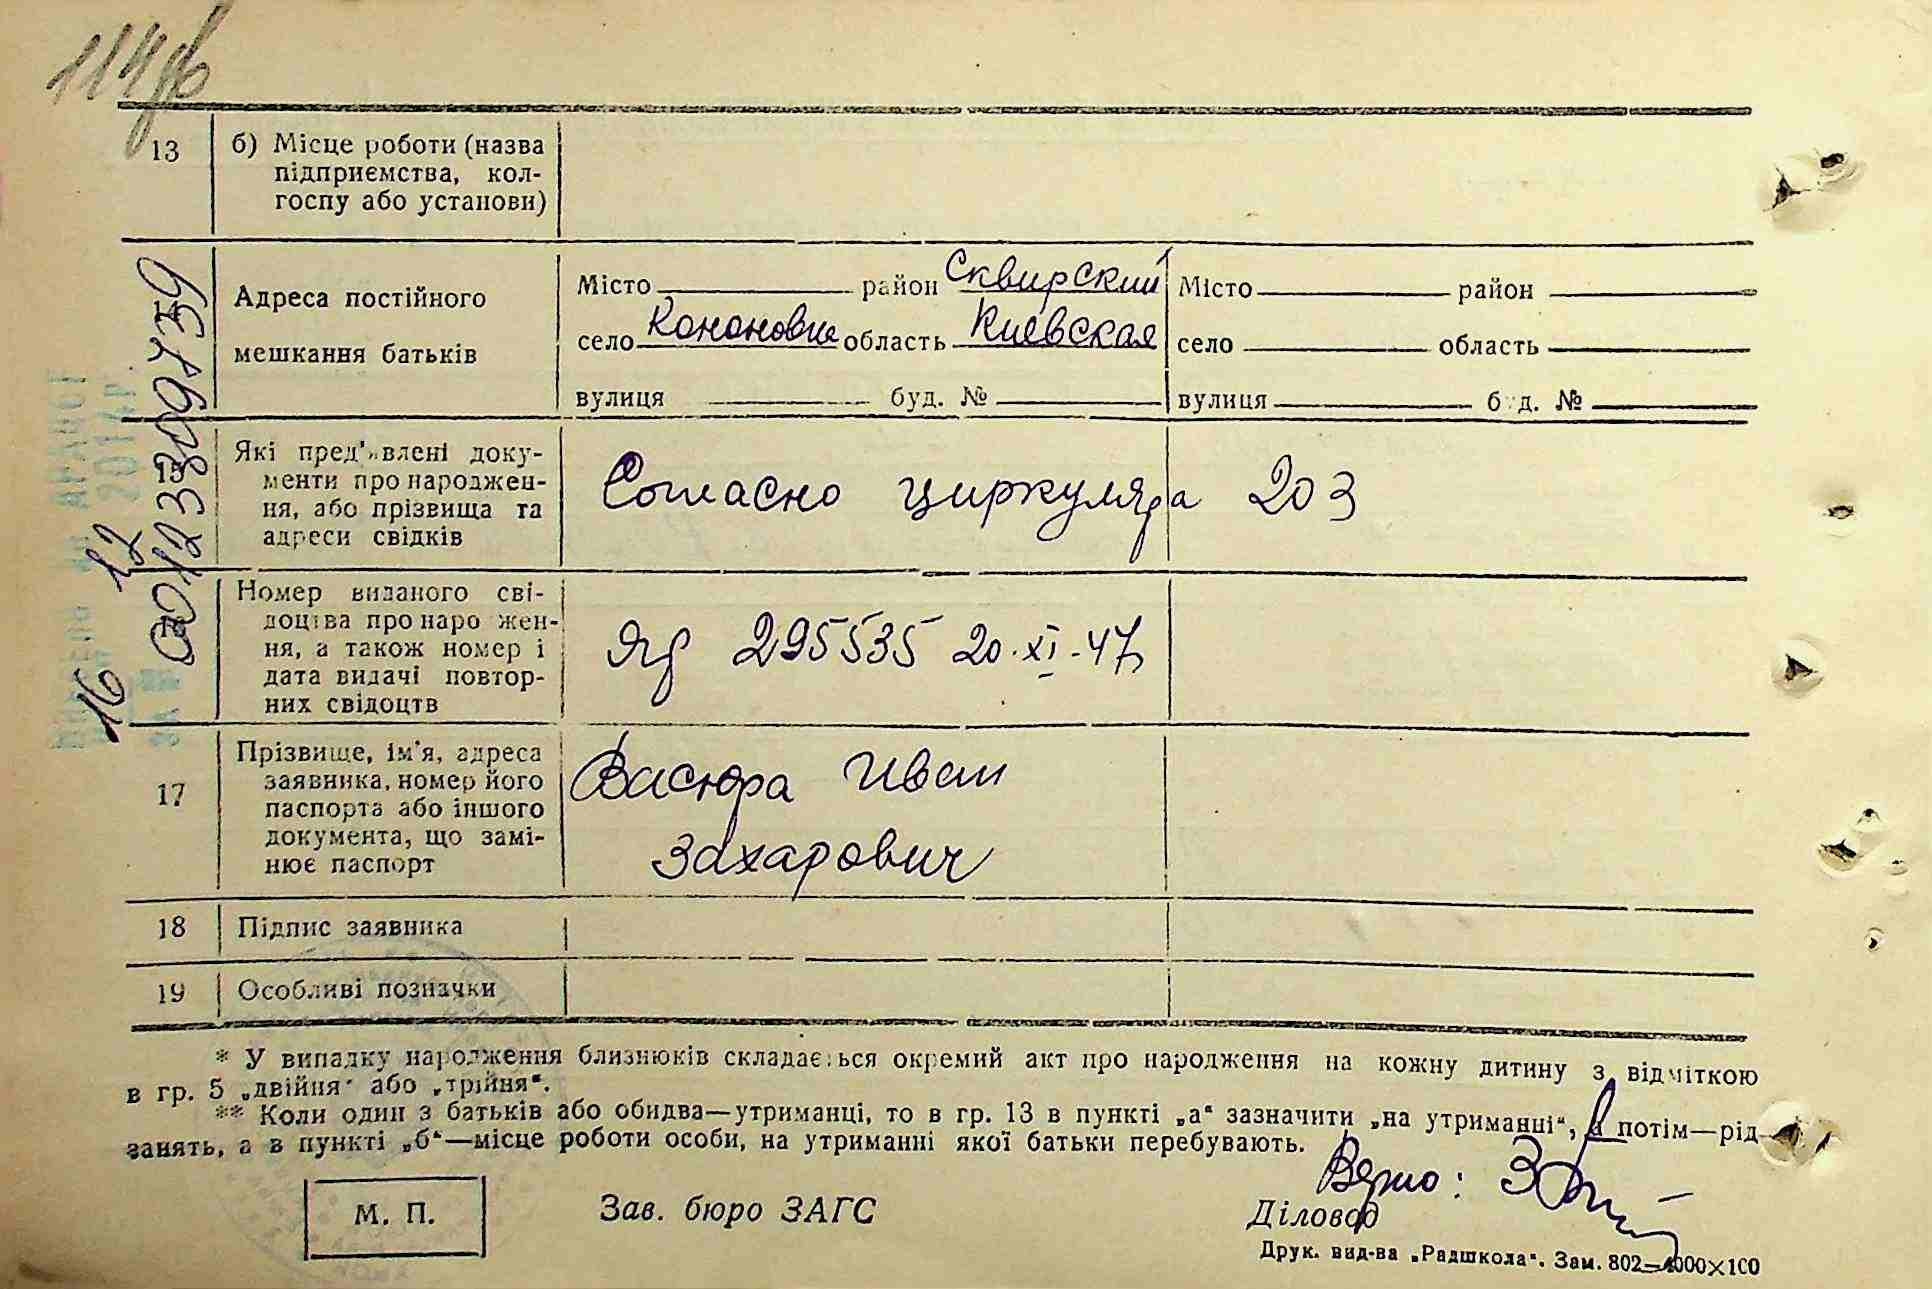 114
13
б) Місце роботи (назва
підприємства, кол-
госпу або установи)
Адреса постійного
мешкання батьків
Місто район Сквирский
село Кононовка область Киевская
вулиця буд. №
Місто район
село область
вулиця буд. №
15
Які пред'явлені доку-
менти про народжен-
ня, або прізвища та
адреси свідків
Согласно циркуляра 203
Номер виданого сві-
доцтва про народжен-
ня, а також номер і
дата видачі повтор-
них свідоцтв
Яд 295535 20·XI·47
17
Прізвище, ім'я, адреса
заявника, номер його
паспорта або іншого
документа, що замі-
нює паспорт
Васюра Иван
Захарович
18 Підпис заявника
19 Особливі позначки
00123309739
16 12
2014
* У випадку народження близнюків складається окремий акт про народження на кожну дитину з відміткою
в гр. 5 „двійня“ або „трійня“.
** Коли один з батьків або обидва—утриманці, то в гр. 13 в пункті „а“ зазначити „на утриманні“, а потім—рід
занять, а в пункті „б“—місце роботи особи, на утриманні якої батьки перебувають.
Верно:
М. П.
Зав. бюро ЗАГС
Діловод
Друк. вид-ва „Радшкола“. Зам. 802—4000×100